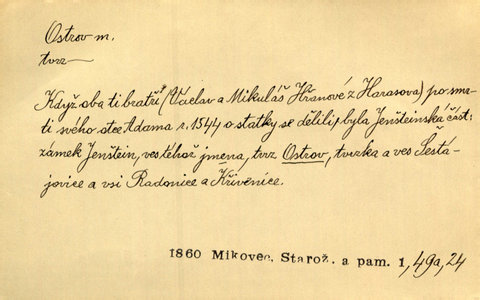 Ostrov m.
tvrz —
Když oba ti bratři (Václav a Mikuláš Hřanové z Harasova) po smr-
ti svého otce Adama r. 1544 o statky se dělili, byla Jenšteinská část:
zámek Jenštein, ves téhož jména, tvrz Ostrov, tvrzka a ves Šestá-
jovice a vsi Radonice a Křivenice.
1860 Mikovec. Starož. a pam. 1, 49a, 24